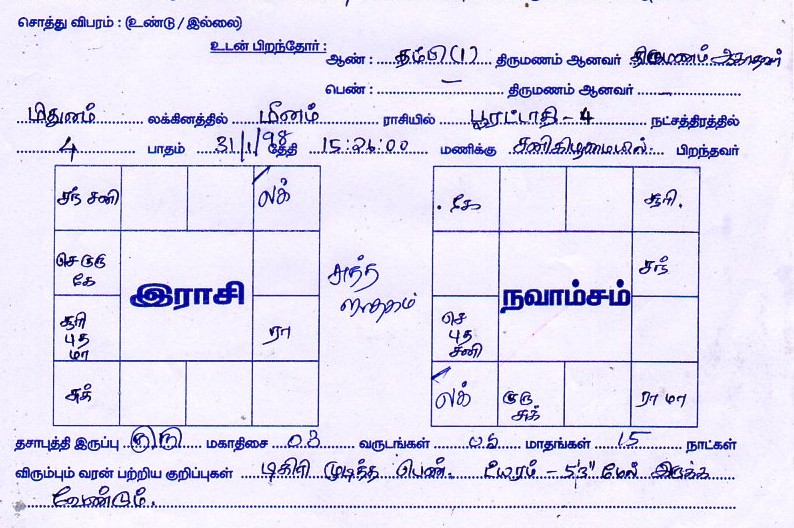 சொத்து விபரம் : (உண்டு / இல்லை)
உடன் பிறந்தோர் :
ஆண் : தம்பி (1) திருமணம் ஆனவர் திருமணம் ஆகாதவர்
பெண் : – திருமணம் ஆனவர் –
மிதுனம் லக்கினத்தில் மீனம் ராசியில் பூரட்டாதி - 4 நட்சத்திரத்தில்
4 பாதம் 31/1/98 தேதி 15:26:00 மணிக்கு சனிகிழமையில் பிறந்தவர்
சந் சனி லக் கே சூரி
செ குரு கே சந்
இராசி நவாம்சம்
சூரி புத மா ரா செ புத சனி
சுக் லக் குரு சுக் ரா மா
தசாபுத்தி இருப்பு குரு மகாதிசை 03 வருடங்கள் 06 மாதங்கள் 15 நாட்கள்
விரும்பும் வரன் பற்றிய குறிப்புகள் டிகிரி முடித்த பெண். உயரம் - 5'3" மேல் இருக்க
வேண்டும்.